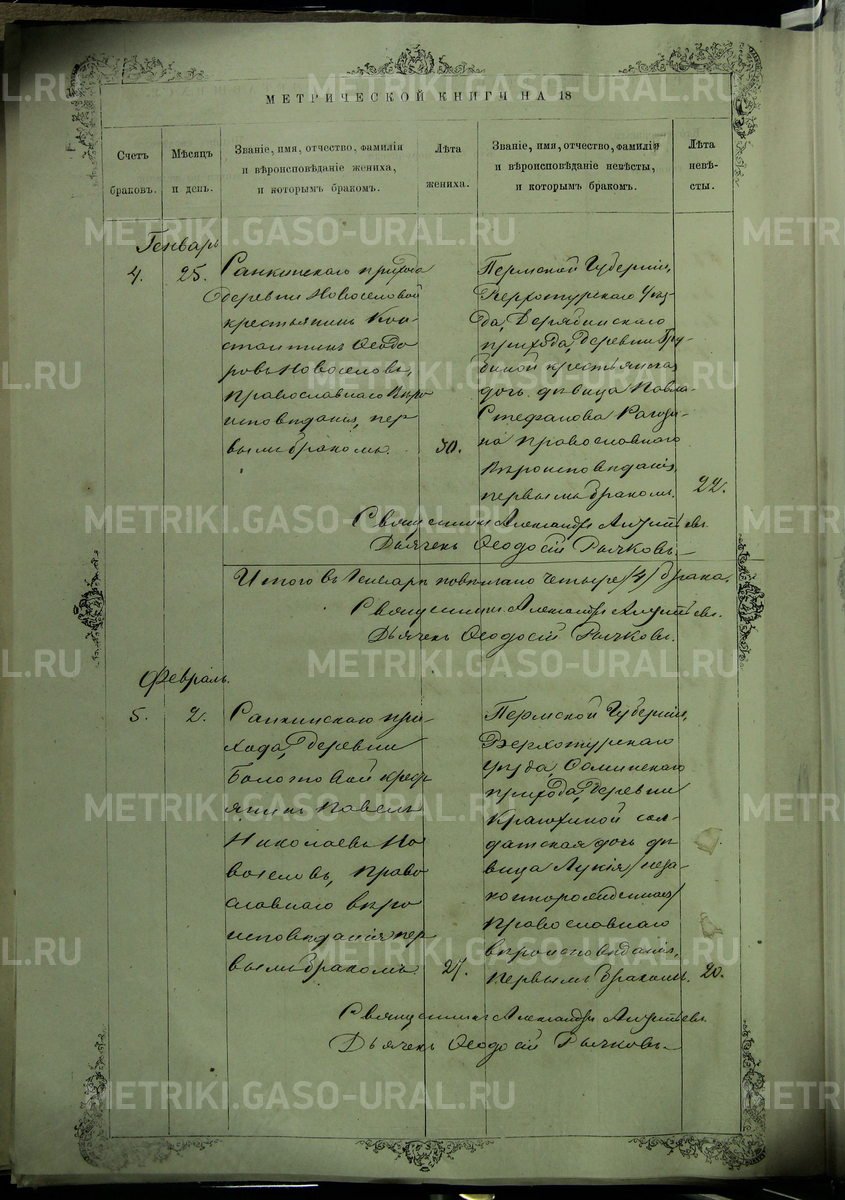 МЕТРИЧЕСКОЙ КНИГИ НА 18
Счетъ браковъ.
Мѣсяцъ и день.
Званіе, имя, отчество, фамилія
и вѣроисповѣданіе жениха,
и которымъ бракомъ.
Лѣта жениха.
Званіе, имя, отчество, фамилія
и вѣроисповѣданіе невѣсты,
и которымъ бракомъ.
Лѣта невѣ-
сты.
Генварь
4.
25.
Санкинскаго прихода
деревни Новоселовой
крестьянинъ Кон-
стантинъ Ѳеодо
ровъ Новоселовъ,
православнаго вѣро
исповѣданія, пер
вымъ бракомъ.
30.
Пермской Губерніи,
Верхотурскаго Уѣз-
да, Дерябинскаго
прихода, деревни
крестьянская
дочь дѣвица Павла
Стефанова
православнаго
вѣроисповѣданія,
первымъ бракомъ.
22.
Священникъ Александръ
Дьячекъ Ѳеодосій Рычковъ.
Итого въ Генварѣ повѣнчано четыре /4/ брака.
Священникъ Александръ
Дьячекъ Ѳеодосій Рычковъ.
Февраль.
5.
2.
Санкинскаго при-
хода, деревни
Болотовской
Павелъ
Николаевъ Но
воселовъ, право
славнаго вѣро
исповѣданія пер
вымъ бракомъ.
27.
Пермской Губерніи,
Верхотурскаго
уѣзда,
прихода, деревни
сол-
датская дочь дѣ
вица Лукія /неза-
коннорожденная/
православнаго
вѣроисповѣданія,
первымъ бракомъ.
20.
Священникъ Александръ
Дьячекъ Ѳеодосій Рычковъ.
METRIKI.GASO-URAL.RU